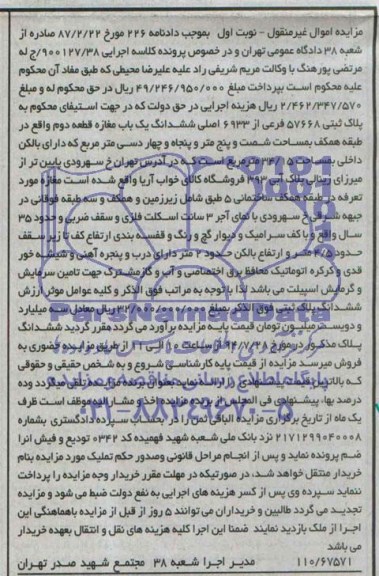 مزایده اموال غیرمنقول - نوبت اول بموجب دادنامه ۲۲۶ مورخ ۸۷/۲/۲۲ صادره از
شعبه ۳۸ دادگاه عمومی تهران و در خصوص پرونده کلاسه اجرایی ۹۰۰۱۲۷/۳۸/ج له
مرتضی پورهنگ با وکالت مریم شریفی راد علیه علیرضا محیطی که طبق مفاد آن محکوم
علیه محکوم است بپرداخت مبلغ ۴۹/۲۴۶/۹۵۰/۰۰۰ ریال در حق محکوم له و مبلغ
۲/۴۶۲/۳۴۷/۵۷۰ ریال هزینه اجرایی در حق دولت که در جهت استیفای محکوم به
پلاک ثبتی ۵۷۶۶۸ فرعی از ۶۹۳۳ اصلی ششدانگ یک باب مغازه قطعه دوم واقع در
طبقه همکف بمساحت شصت و پنج متر و پنجاه و چهار دسی متر مربع که دارای بالکن
داخلی بمساحت ۳۴/۱۵ مترمربع است که در آدرس تهران خ سهرودی پایین تر از
میرزای زینالی پلاک آبی ۳۹۳ فروشگاه کالای خواب آریا واقع شده است مغازه مورد
تعرفه در طبقه همکف ساختمانی ۵ طبق شامل زیرزمین و همکف و سه طبقه فوقانی در
جبهه شرقی خ سهرودی با نمای آجر ۳ سانت اسکلت فلزی و سقف ضربی و حدود ۳۵
سال واقع و با کف سرامیک و دیوار گچ و رنگ و قفسه بندی ارتفاع کف تا زیر سقف
حدود ۴/۵ متر و ارتفاع بالکن حدود ۲ متر دارای درب و پنجره آهنی و شیشه خور
قدی و کرکره اتوماتیک محافظ برق اختصاصی و آب و گاز مشترک جهت تامین سرمایش
و گرمایش اسپیلت می باشد لذا با توجه به مراتب فوق الذکر و کلیه عوامل موثر ارزش
ششدانگ پلاک ثبتی فوق الذکر بمبلغ ریال معادل سه میلیارد
و دویست میلیون تومان قیمت پایه مزایده برآورد می گردد مقرر گردید ششدانگ
پلاک مذکور در مورخ ۹۴/۷/۲۸ از ساعت ۱۰ الی ۱۱ از طریق مزایده حضوری به
فروش میرسد مزایده از قیمت پایه کارشناسی شروع و به شخص حقیقی و حقوقی
که بالاترین قیمت پیشنهادی را ارائه نماید بعنوان برنده مزایده تلقی میگردد وده
درصد بها، پیشنهادی فی المجلس از برنده مزایده اخذ و مشارالیه موظف است ظرف
یک ماه از تاریخ برگزاری مزایده الباقی ثمن را در بحساب سپرده دادگستری بشماره
۲۱۷۱۲۹۹۰۴۰۰۰۸ نزد بانک ملی شعبه شهید فهمیده کد ۰۳۴۲ تودیع و فیش انرا
ضم پرونده نماید و پس از انجام مراحل قانونی وصدور حکم تملیک مورد مزایده بنام
خریدار منتقل خواهد شد، در صورتیکه در مهلت مقرر خریدار وجه مزایده را پرداخت
ننماید سپرده وی پس از کسر هزینه های اجرایی به نفع دولت ضبط می شود و مزایده
تجدید می گردد طالبین و خریداران می توانند ۵ روز از قبل از مزایده باهماهنگی این
اجرا از ملک بازدید نمایند ضمنا این اجرا کلیه هزینه های نقل و انتقال بعهده خریدار
می باشد
۱۱۰/۶۷۵۷۱ مدیر اجرا شعبه ۳۸ مجتمع شهید صدر تهران